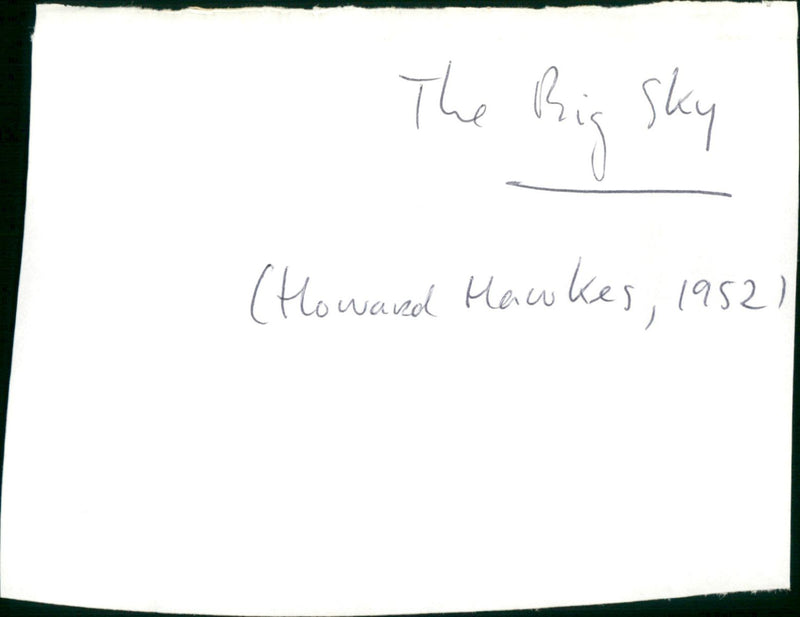 The Big Sky
(Howard Hawkes, 1952)